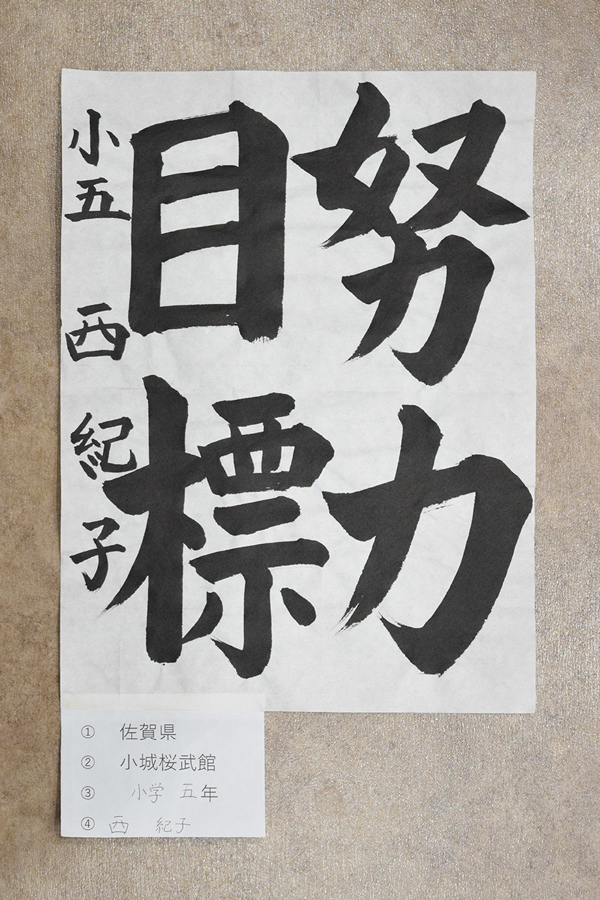 努力
目標
小五 西 紀子
① 佐賀県
② 小城桜武館
③ 小学 五年
④ 西 紀子